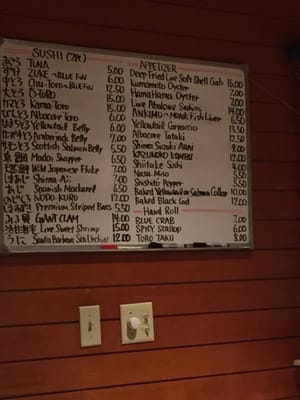 SUSHI (2PC)
まぐろ TUNA 5.00
づけ ZUKE ~ BLUE FIN 6.00
中とろ CHU-TORO ~ BLUE FIN 12.50
大とろ O-TORO 15.00
Kama Toro 15.00
Albacore Toro 6.00
Yellowtail Belly 6.00
Amberjack Belly 7.00
Scottish Salmon Belly 5.50
Madai Snapper 6.50
Wild Japanese Fluke 7.00
Shima Aji 7.00
あじ Spanish Mackerel 6.50
のどくろ NODO KURO 12.00
Premium Striped Bass 5.50
GIANT CLAM 14.00
Live Sweet Shrimp 15.00
うに Santa Barbara Sea Urchin 12.00
APPETIZER
Deep Fried Live Soft Shell Crab 16.00
Kumamoto Oyster 7.00
Hama Hama Oyster 7.00
Live Abalone Sashimi
ANKIMO ~ Monk Fish Liver
Yellowtail Carpaccio 13.50
Albacore Tataki 12.50
Shima Suzuki ARAI 9.00
KAZUNOKO KONBU 12.00
Shiitake Sushi 4.00
Nasu Miso 5.50
Shishito Pepper 5.50
Baked Yellowtail or Salmon Collar 10.00
Baked Black Cod 12.00
Hand Roll
BLUE CRAB 7.00
SPICY SCALLOP 6.00
TORO TAKU 8.00